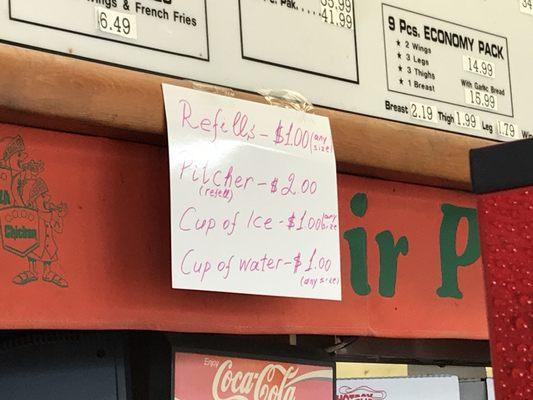 & French Fries
6.49
Pak.
41.99
9 Pcs. ECONOMY PACK
★ 2 Wings
★ 3 Legs
★ 3 Thighs
★ 1 Breast
14.99
With Garlic Bread
15.99
Breast 2.19 Thigh 1.99 Leg 1.79
Refills - $1.00 (any size)
Pitcher - $2.00
(refill)
Cup of Ice - $1.00 (any size)
Cup of water - $1.00
(any size)
Chicken
ir P
Enjoy
Coca-Cola